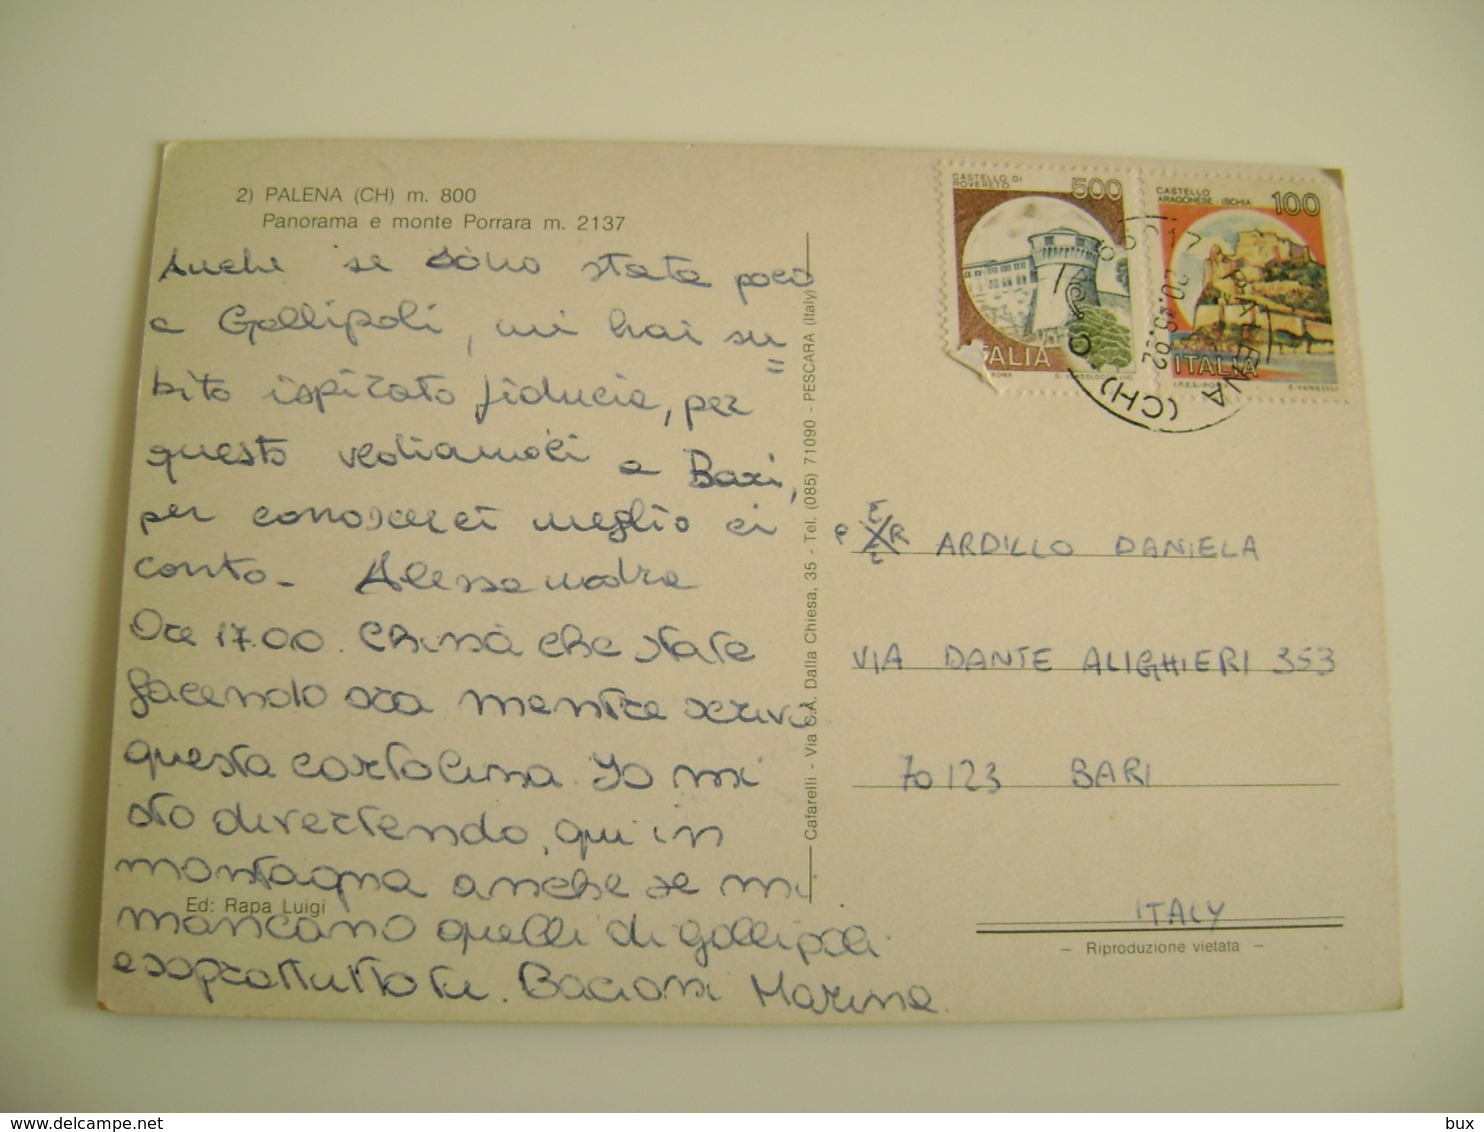 2) PALENA (CH) m. 800
Panorama e monte Porrara m. 2137
Anche se sono stata poco
a Gallipoli, mi hai su
bito ispirato fiducia, per
questo vediamoci a Bari,
per conoscerci meglio ci
conto - Alessandra
Ore 17.00. Chissà che state
facendo ora mentre scrivo
questa cartolina. Io mi
sto divertendo, qui in
montagna anche se mi
mancano quelli di Gallipoli
e soprattutto tu. Bacioni Marina
Ed: Rapa Luigi
Cafarelli - Via C.A. Dalla Chiesa, 35 - Tel. (085) 71090 - PESCARA (Italy)
CASTELLO DI
ROVERETO
500
ITALIA
ROMA
CASTELLO
ARAGONESE - ISCHIA
100
ITALIA
I.P.Z.S. - ROMA E. VANGELLI
PALENA (CH)
PER ARDILLO DANIELA
VIA DANTE ALIGHIERI 353
70123 BARI
ITALY
– Riproduzione vietata –
bux